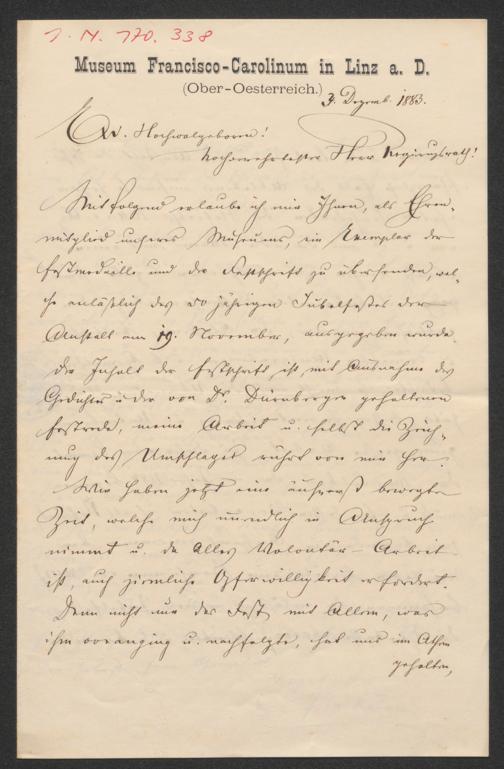 J. N. 170.338
Museum Francisco-Carolinum in Linz a. D.
(Ober-Oesterreich.)
3. Dezemb. 1883.
Ew. Hochwolgeboren!
Hochverehrtester Herr Regierungsrath!
Mitfolgend erlaube ich mir Ihnen, als Ehren-
mitglied unseres Museums, ein Exemplar der
Festmedaille und der Festschrift zu übersenden, wel-
che anläßlich des 50 jährigen Jubelfestes der
Anstalt am 19. November, ausgegeben wurde.
Der Inhalt der Festschrift ist, mit Ausnahme des
Gedichtes u. der von Dr. Dürnberger gehaltenen
Festrede, meine Arbeit u. selbst die Zeich-
nung des Umschlages rührt von mir her.
Wir haben jetzt eine äußerst bewegte
Zeit, welche mich unendlich in Anspruch
nimmt u. da Alles Volontär-Arbeit
ist, auch ziemliche Opferwilligkeit erfordert.
Denn nicht nur das Fest mit Allem, was
ihm voranging u. nachfolgte, hat uns im Athem
gehalten,